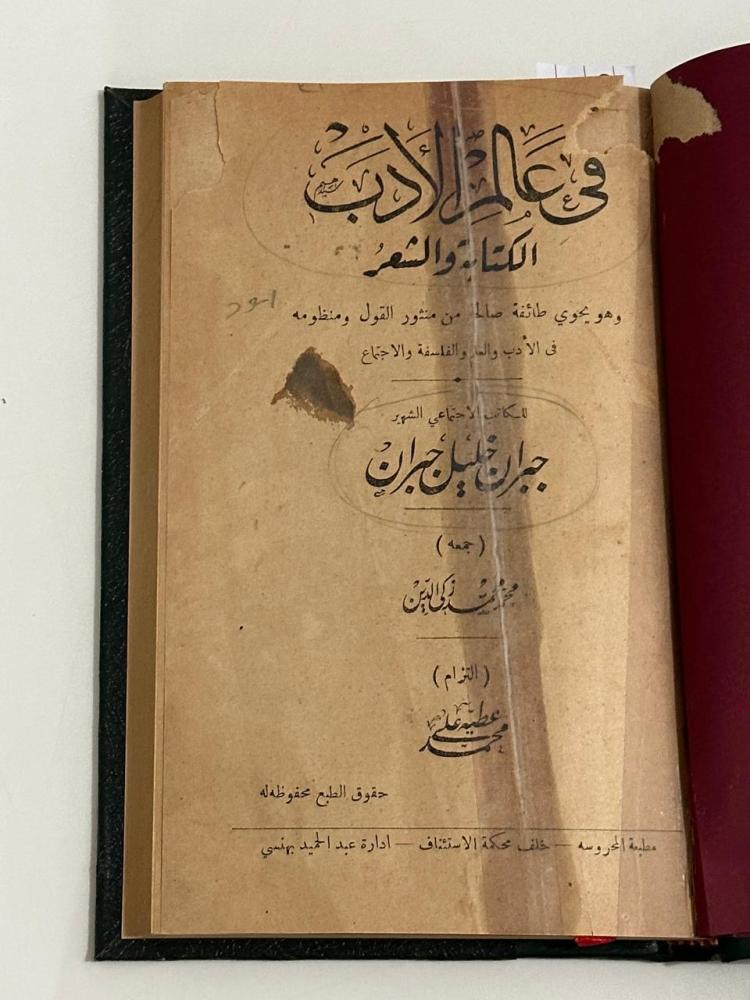 في عالم الأدب
الكتابة والشعر
وهو يحوي طائفة صالحة من منثور القول ومنظومه
في الأدب والعلم والفلسفة والاجتماع
للكاتب الاجتماعي الشهير
جبران خليل جبران
( جمعه )
محمد زكى الدين
( التزام )
محمد عطيه علي
حقوق الطبع محفوظه له
مطبعة المحروسه — خلف محكمة الاستئناف — ادارة عبد الحميد بهنسي